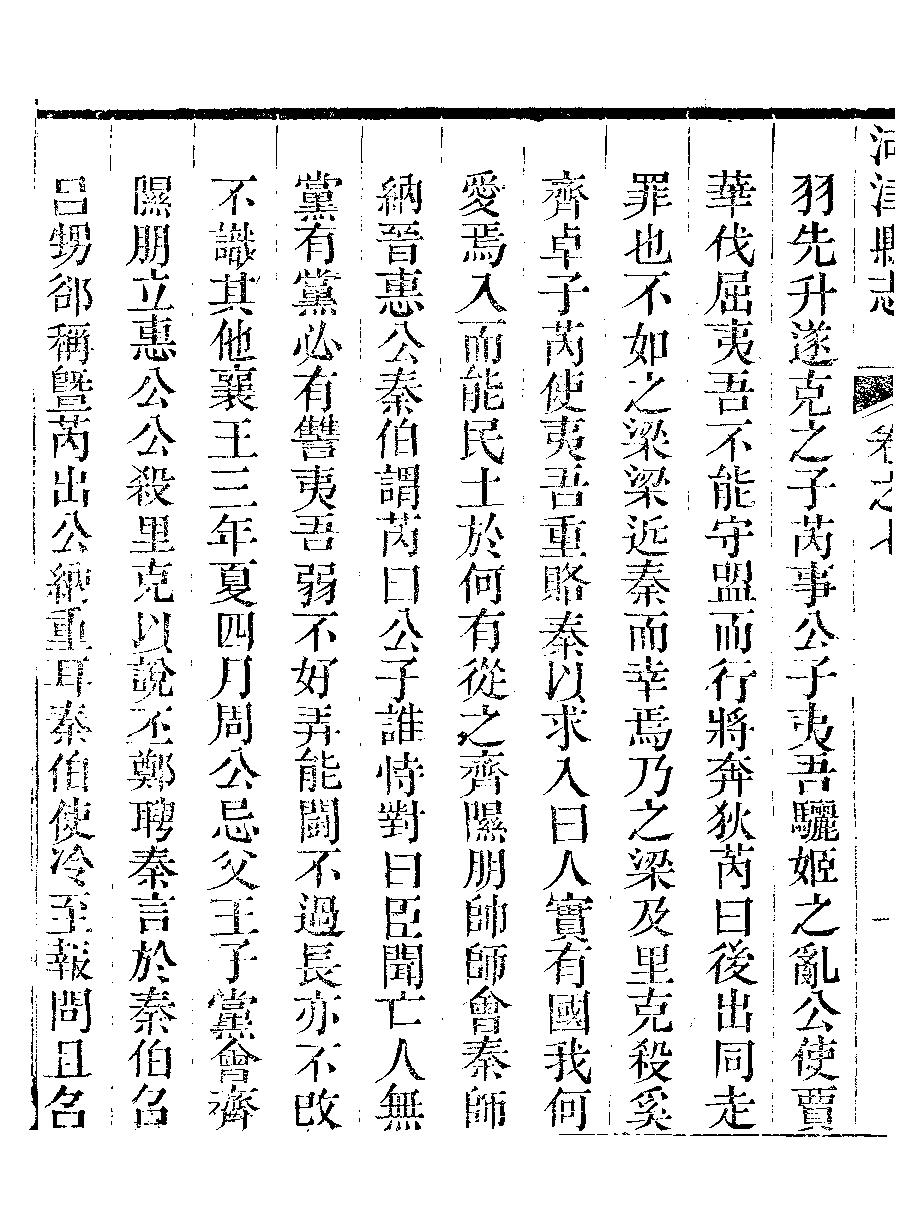 河津縣志 卷之七 一
羽先升遂克之子芮事公子夷吾驪姬之亂公使賈
華伐屈夷吾不能守盟而行將奔狄芮曰後出同走
罪也不如之梁梁近秦而幸焉乃之梁及里克殺奚
齊卓子芮使夷吾重賂秦以求入曰人實有國我何
愛焉入而能民土於何有從之齊隰朋帥師會秦師
納晉惠公秦伯謂芮曰公子誰恃對曰臣聞亡人無
黨有黨必有讐夷吾弱不好弄能鬪不過長亦不改
不識其他襄王三年夏四月周公忌父王子黨會齊
隰朋立惠公公殺里克以說丕鄭聘秦言於秦伯召
呂甥郤稱曁芮出公納重耳秦伯使冷至報問且召